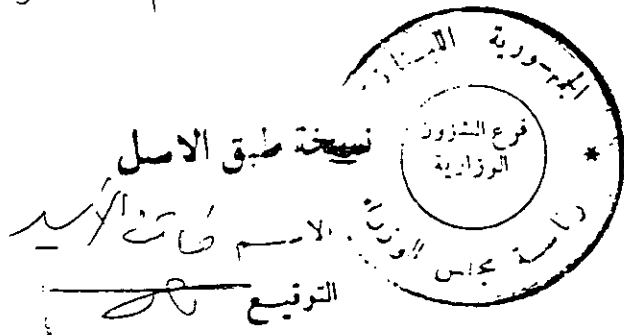 الجمهورية اللبنانية
فرع الشؤون
الوزارية
رئاسة مجلس الوزراء
نسخة طبق الاصل
الاسم
التوقيع